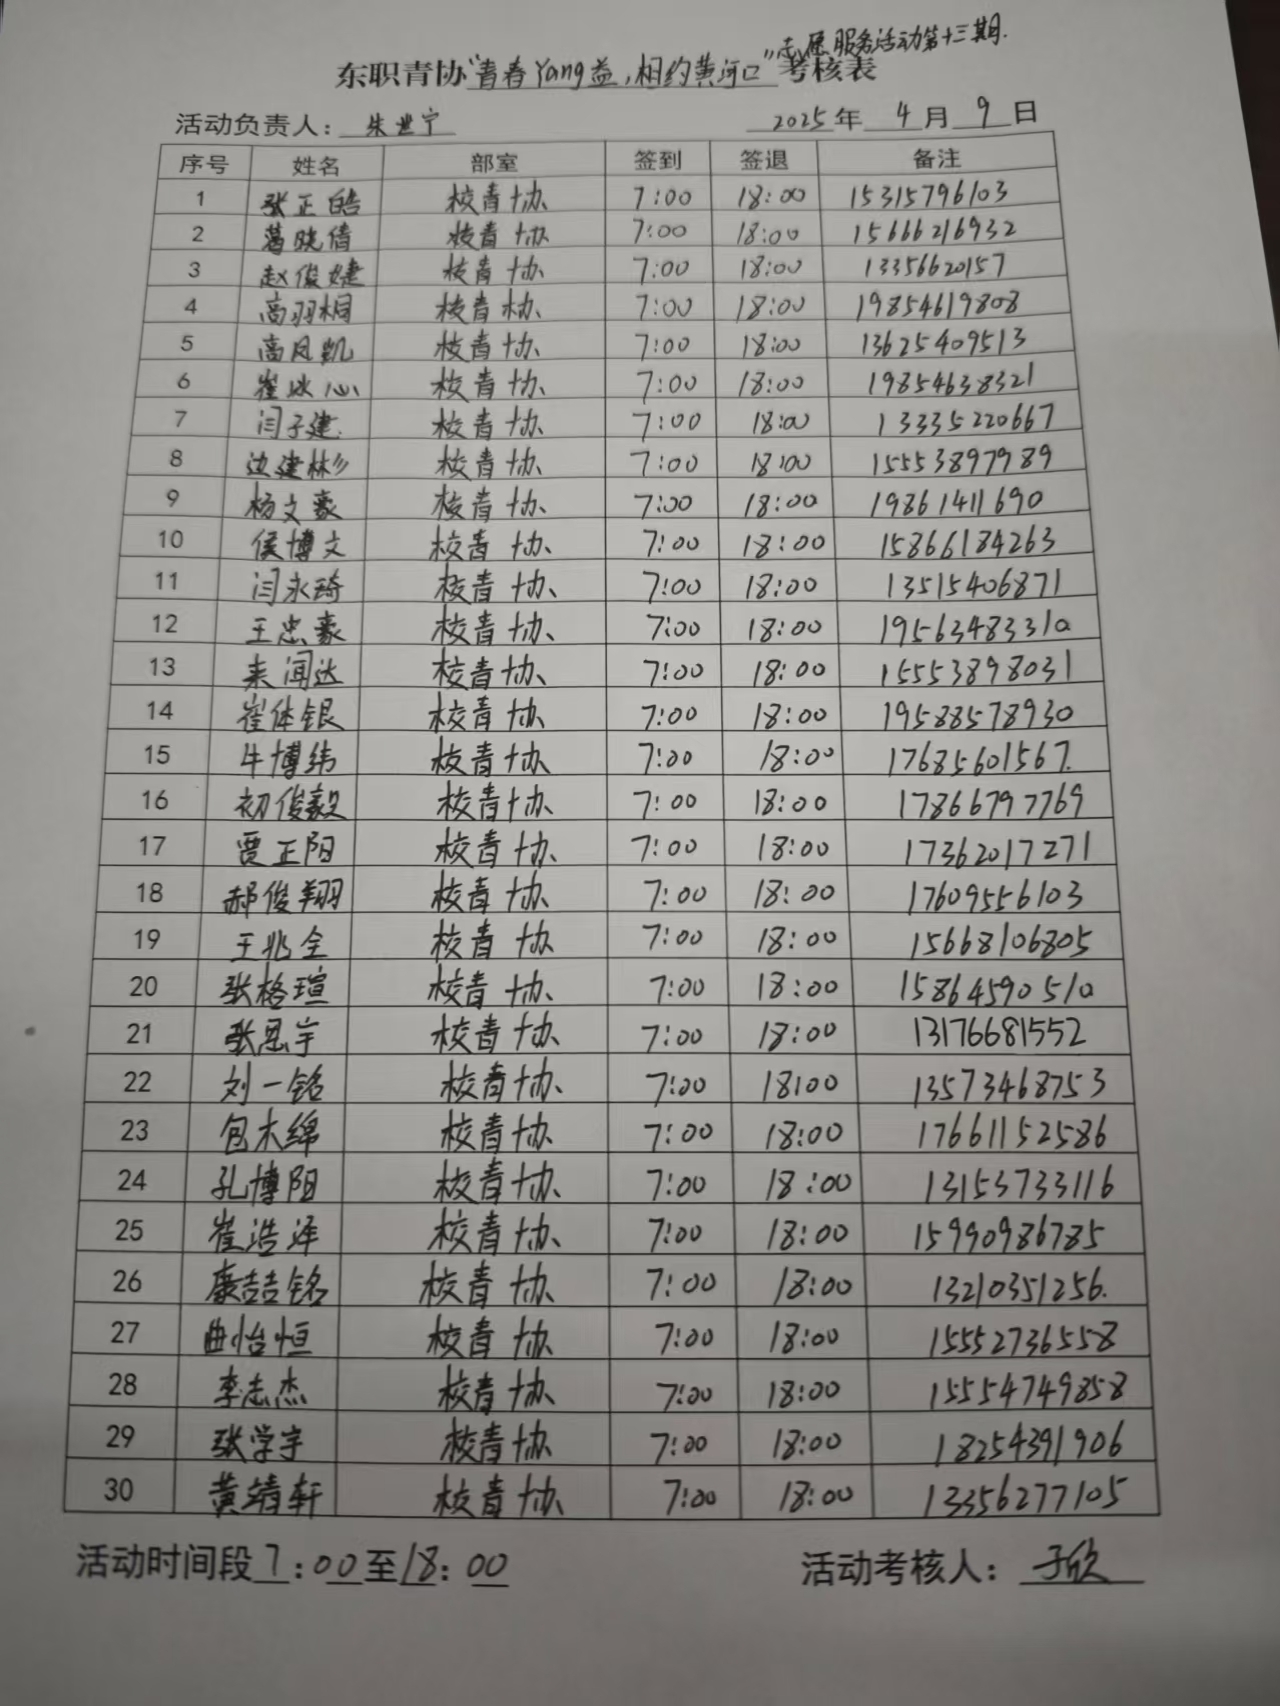 志愿服务活动第十三期.
东职青协"青春Yang益,相约黄河口"考核表
活动负责人: 朱世宁 2025年 4月 9日
序号 姓名 部室 签到 签退 备注
1 张正皓 校青协 7:00 18:00 15315796103
2 葛晓倩 校青协 7:00 18:00 15666216932
3 赵俊婕 校青协 7:00 18:00 13356620157
4 高羽桐 校青协 7:00 18:00 19854619808
5 高凤凯 校青协 7:00 18:00 13625409513
6 崔冰心 校青协 7:00 18:00 19854638321
7 闫子建 校青协 7:00 18:00 13335220667
8 边建彬 校青协 7:00 18:00 15553897989
9 杨文豪 校青协 7:00 18:00 19861411690
10 侯博文 校青协 7:00 18:00 15866184263
11 闫永琦 校青协 7:00 18:00 13515406871
12 王忠豪 校青协 7:00 18:00 19563483310
13 来闻达 校青协 7:00 18:00 15553898031
14 崔体银 校青协 7:00 18:00 19588578930
15 牛博纬 校青协 7:00 18:00 17685601567.
16 初俊毅 校青协 7:00 18:00 17866797769
17 贾正阳 校青协 7:00 18:00 17362017271
18 郝俊翔 校青协 7:00 18:00 17609556103
19 王兆全 校青协 7:00 18:00 15668106805
20 张格瑄 校青协 7:00 18:00 15864590510
21 张恩宇 校青协 7:00 18:00 13176681552
22 刘一铭 校青协 7:00 18:00 13573468753
23 包木绵 校青协 7:00 18:00 17661152586
24 孔博阳 校青协 7:00 18:00 13153733116
25 崔浩泽 校青协 7:00 18:00 15990986785
26 康喆铭 校青协 7:00 18:00 13210351256.
27 曲怡恒 校青协 7:00 18:00 15552736558
28 李志杰 校青协 7:00 18:00 15554749858
29 张学宇 校青协 7:00 18:00 18254391906
30 黄靖轩 校青协 7:00 18:00 13356277105
活动时间段7:00至18:00 活动考核人: 于欣